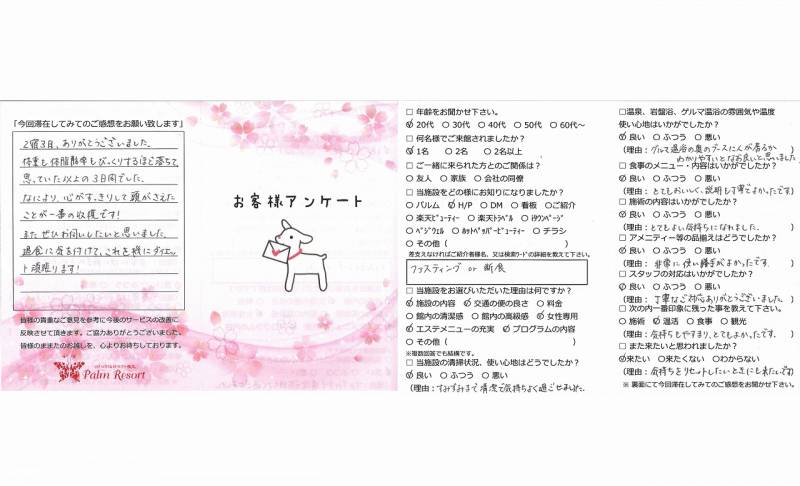 「今回滞在してみてのご感想をお願い致します」
2泊3日、ありがとうございました。
体重も体脂肪率もびっくりするほど落ちて
思っていた以上の3日間でした。
なにより、心がすっきりして頭がさえた
ことが一番の収穫です!
またぜひお伺いしたいと思いました。
過食に気を付けて、これを機にダイエッ
ト頑張ります!
皆様の貴重なご意見を参考に今後のサービスの改善に
反映させて頂きます。ご協力ありがとうございました。
皆様のままたのお越しを、心よりお待ちしております。
Palm Resort
お客様アンケート
□ 年齢をお聞かせ下さい。
○20代 ○30代 ○40代 ○50代 ○60代～
□ 何名様でご来館されましたか?
○1名 ○2名 ○2名以上
□ ご一緒に来られた方とのご関係は?
○友人 ○家族 ○会社の同僚
□ 当施設をどの様にお知りになりましたか?
○パルム ○H/P ○DM ○看板 ○ご紹介
○楽天ビューティー ○楽天トラベル ○iタウンページ
○ベジウェル ○ホットペッパービューティー ○チラシ
○その他( )
差支えなければご紹介者様名、又は検索ワードの詳細を教えて下さい。
ファスティング or 断食
□ 当施設をお選びいただいた理由は何ですか?
○施設の内容 ○交通の便の良さ ○料金
○館内の清潔感 ○館内の高級感 ○女性専用
○エステメニューの充実 ○プログラムの内容
○その他( )
※複数回答でも結構です。
□ 当施設の清掃状況、使い心地はどうでしたか?
○良い ○ふつう ○悪い
(理由:すみずみまで清潔で気持ちよく過ごせました。
□温泉、岩盤浴、ゲルマ温浴の雰囲気や温度
使い心地はいかがでしたか?
○良い ○ふつう ○悪い
(理由:ゲルマ温浴の奥のブースに人が居るか )
わかりやすいとなお良いと思いました
□ 食事のメニュー・内容はいかがでしたか?
○良い ○ふつう ○悪い
(理由:とてもおいしく、説明も丁寧でよかったです)
□ 施術の内容はいかがでしたか?
○良い ○ふつう ○悪い
(理由:とてもよい気持ちになれました。 )
□ アメニティー等の品揃えはどうでしたか?
○良い ○ふつう ○悪い
(理由:非常に使い勝手がよかったです。 )
□ スタッフの対応はいかがでしたか?
○良い ○ふつう ○悪い
(理由:丁寧なご対応ありがとうございました。)
□ 次の内一番印象に残った事を教えて下さい。
○施術 ○温活 ○食事 ○観光
(理由:気持ちもやすまり、とてもよかったです。)
□ また来たいと思われましたか?
○来たい ○来たくない ○わからない
(理由:気持ちをリセットしたいときにも来たいです)
※ 裏面にて今回滞在してみてのご感想をお聞かせ下さい。